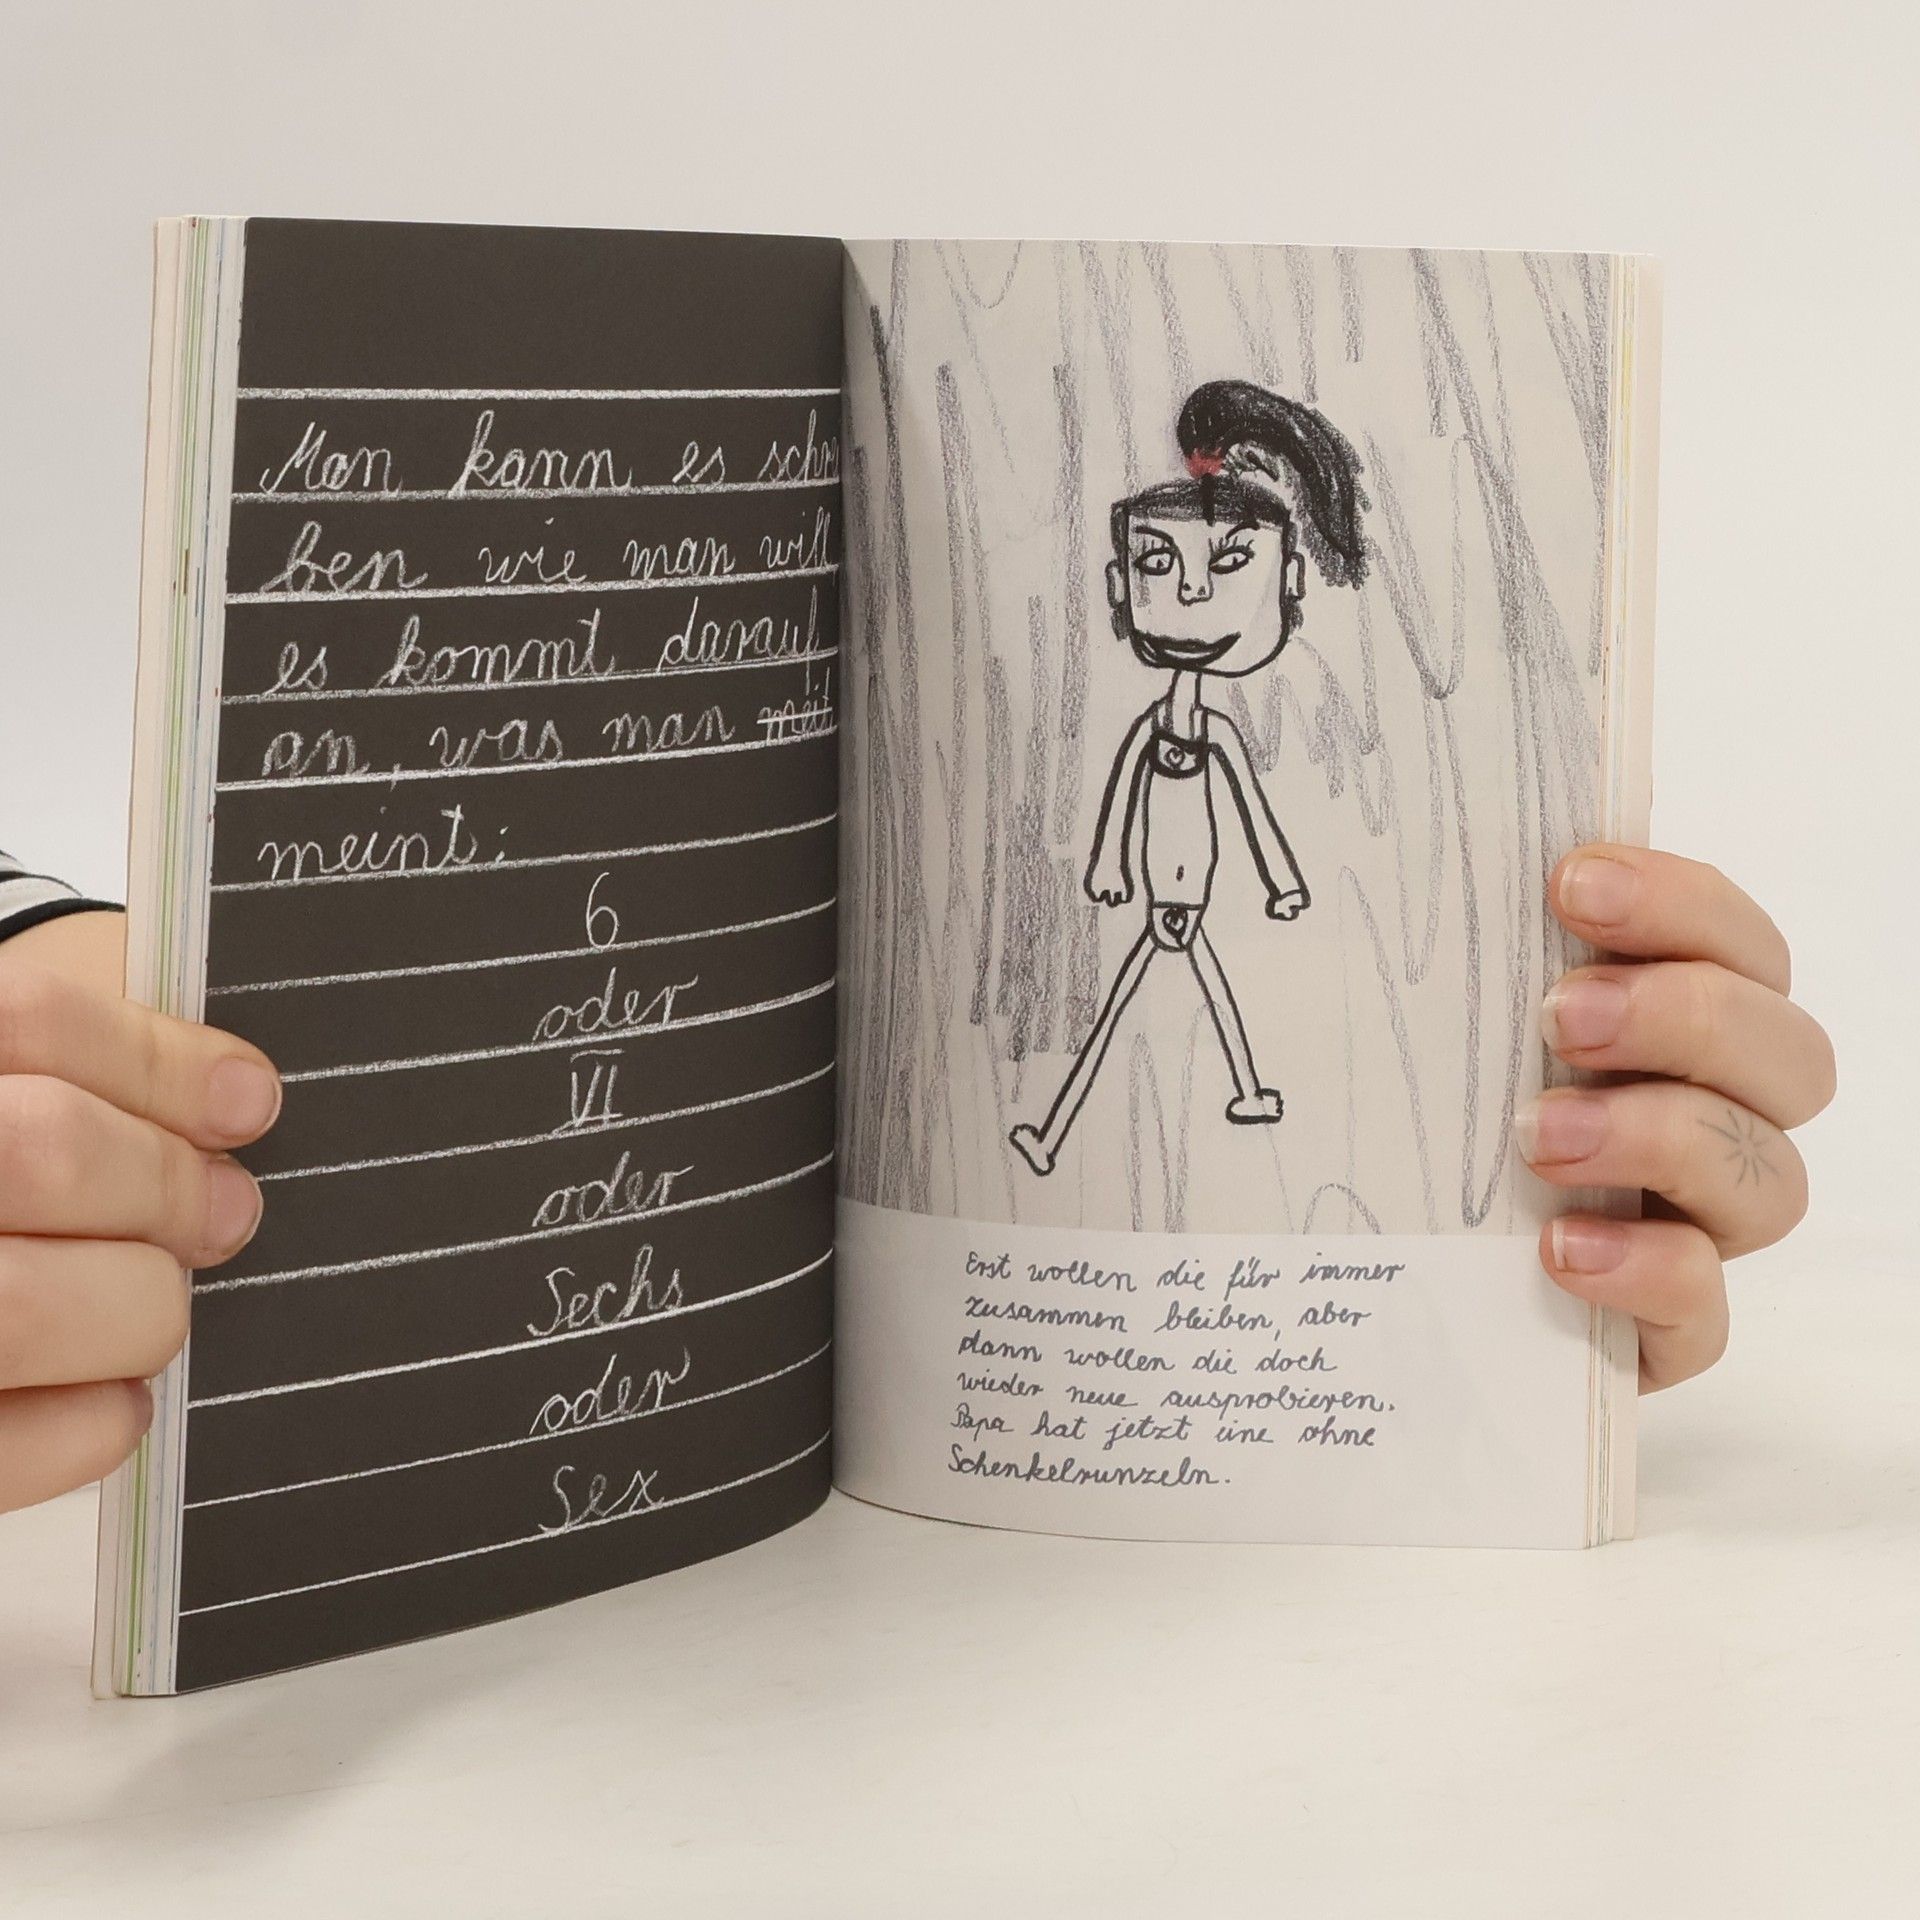 Man kann es schrei
ben wie man will,
es kommt darauf
an, was man meit
meint:
6
oder
VI
oder
Sechs
oder
Sex
Erst wollen die für immer
zusammen bleiben, aber
dann wollen die doch
wieder neue ausprobieren.
Papa hat jetzt eine ohne
Schenkelrunzeln.